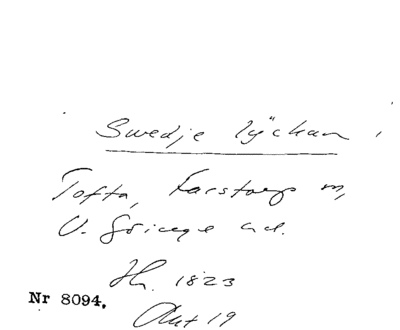 Swedje lÿckan
Tofta, Farstorps m,
V. Göinge hd.
Hh. 1823
Nr 8094.
Akt 19